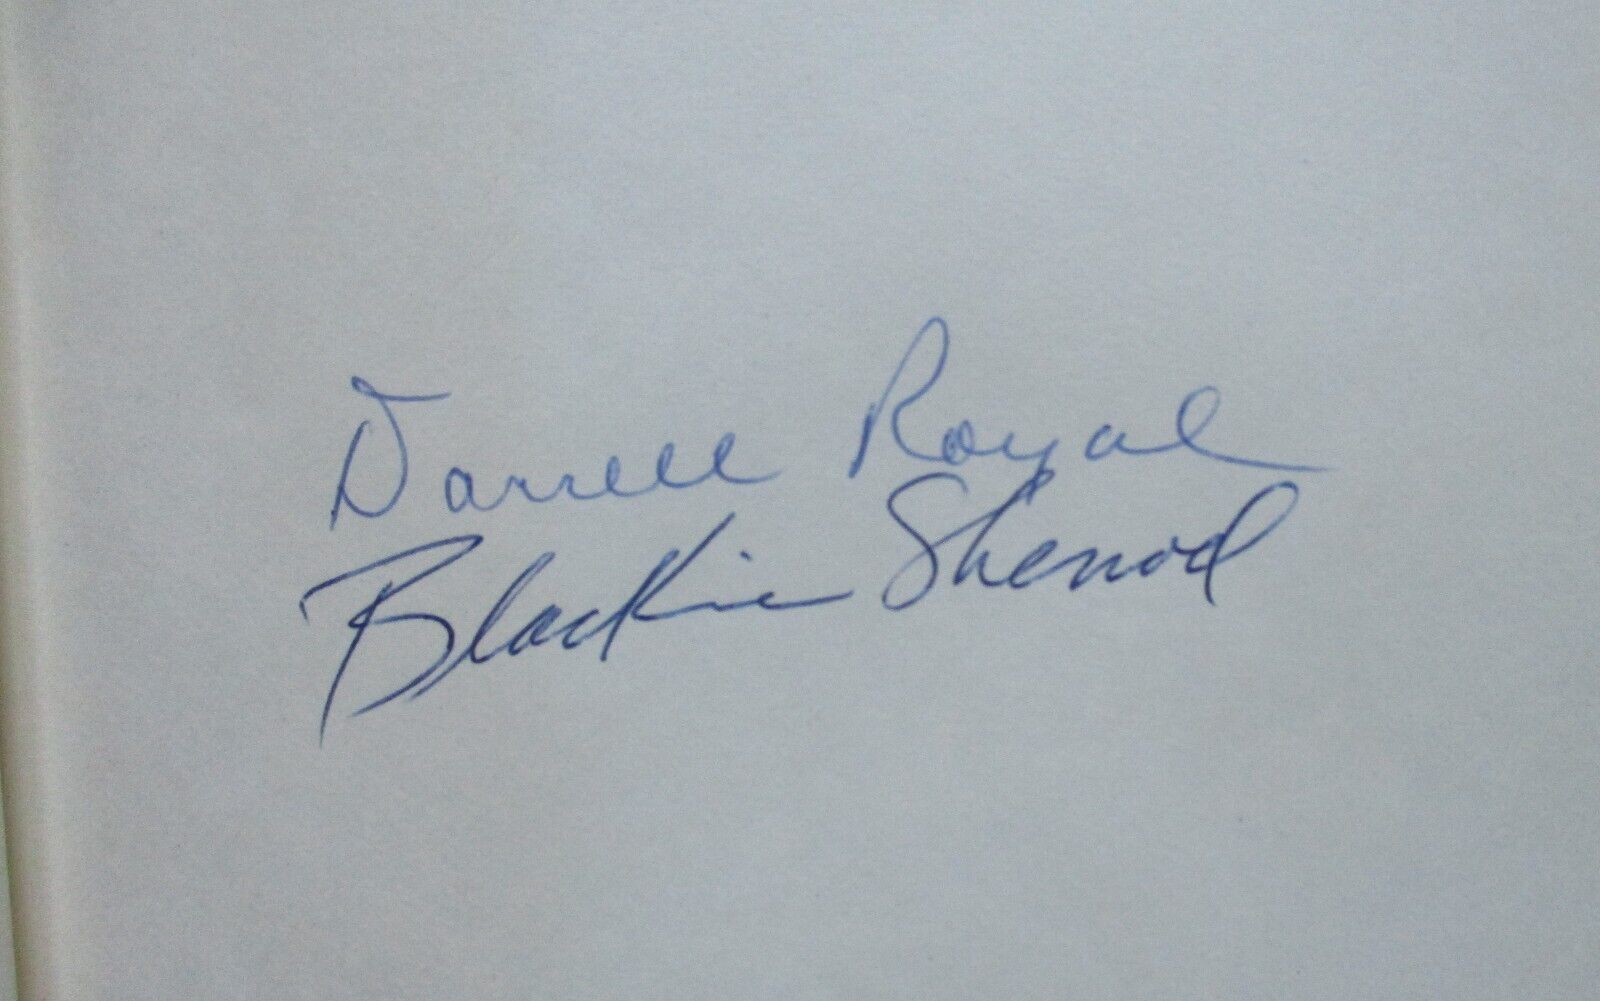 Darrell Royal
Blackie Sherrod